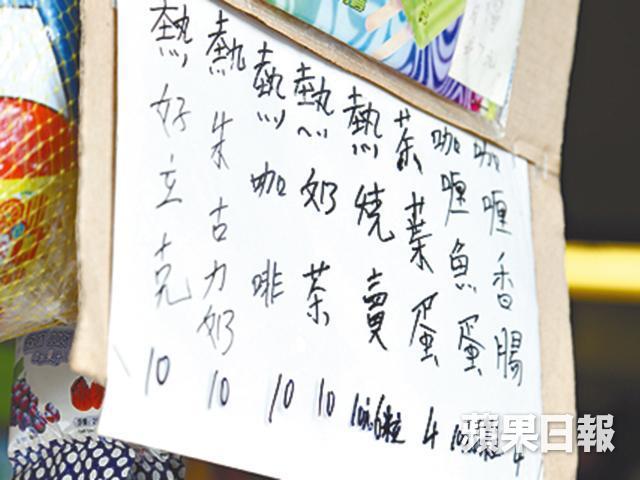 咖喱香腸 4
咖喱魚蛋 10
茶葉蛋 4
熱燒賣 10元6粒
熱奶茶 10
熱咖啡 10
熱朱古力奶 10
熱好立克 10
蘋果日報